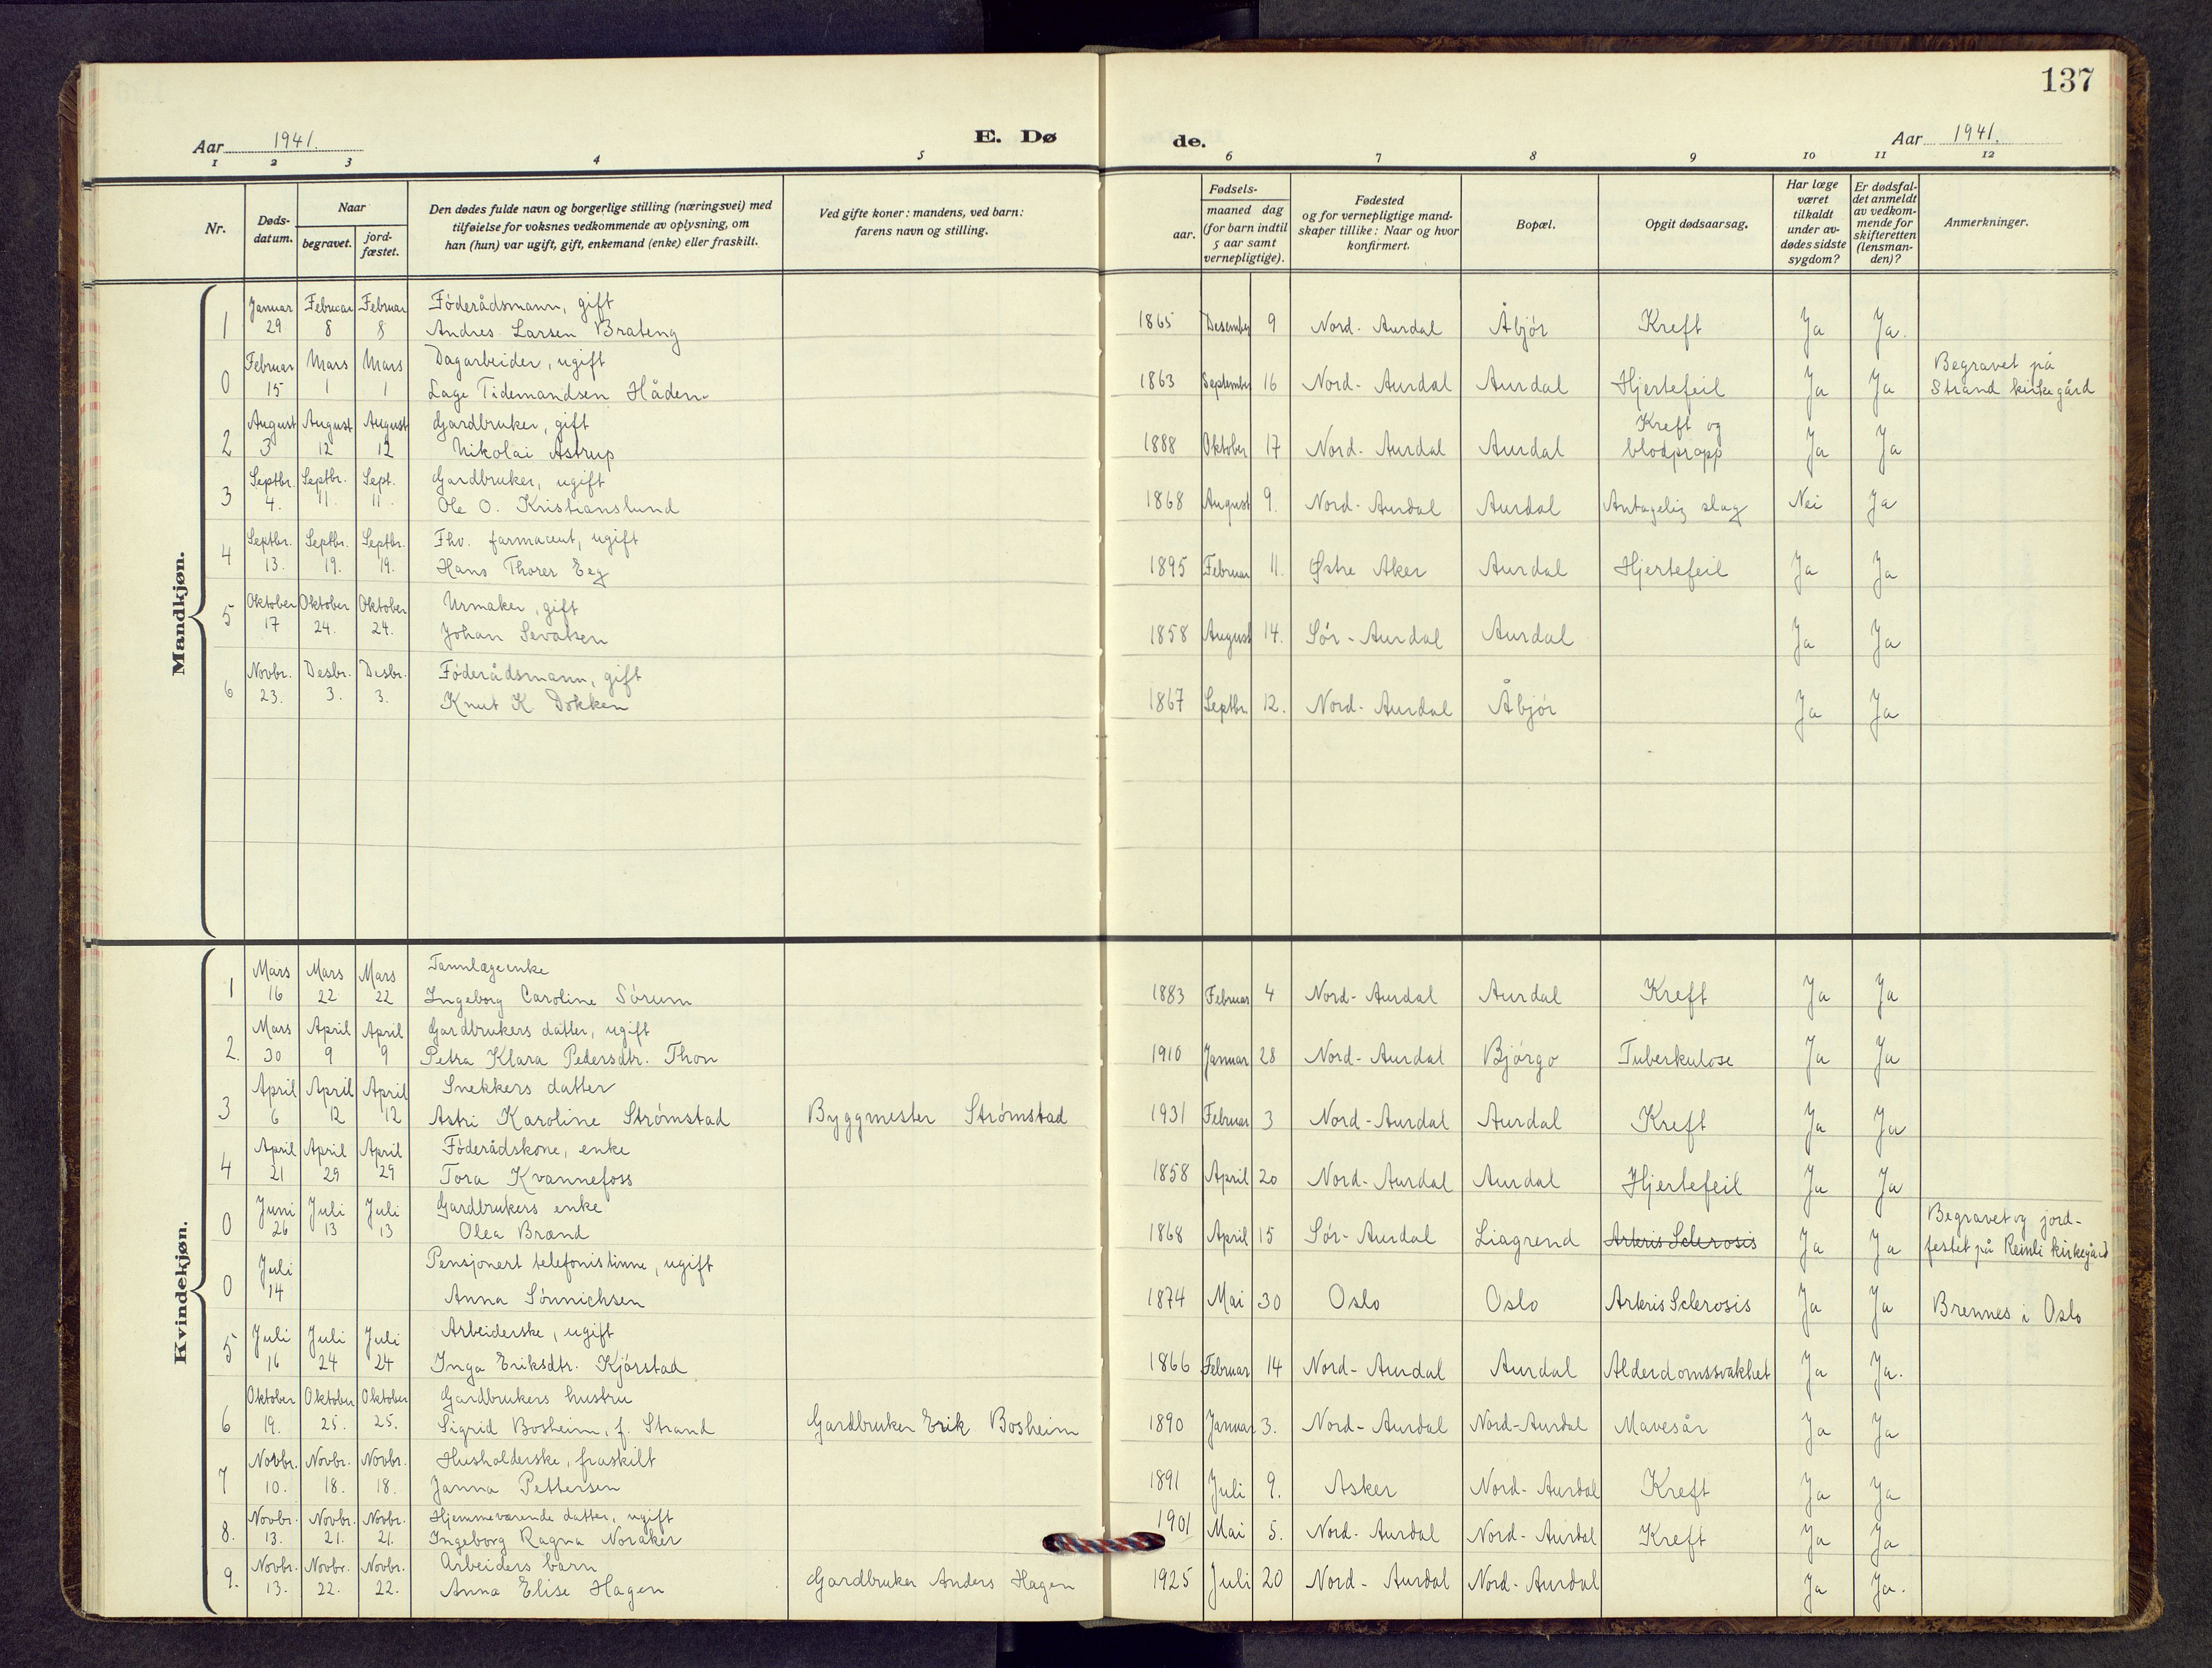 137
Aar 1941. E. Dø de. Aar 1941.
1 2 3 4 5 6 7 8 9 10 11 12
Nr. Døds-datum. Naar begravet. jord-fæstet. Den dødes fulde navn og borgerlige stilling (næringsvei) med tilføielse for voksnes vedkommende av oplysning, om han (hun) var ugift, gift, enkemand (enke) eller fraskilt. Ved gifte koner: mandens, ved barn: farens navn og stilling. Fødsels- aar. maaned dag (for barn indtil 5 aar samt vernepligtige). Fødested og for vernepligtige mand-skaper tillike: Naar og hvor konfirmert. Bopæl. Opgit dødsaarsag. Har læge været tilkaldt under av-dødes sidste sygdom? Er dødsfal-det anmeldt av vedkom-mende for skifteretten (lensman-den)? Anmerkninger.
Mandkjøn.
1 Januar 29 Februar 8 Februar 8 Føderådsmann, gift
Andres Larsen Brateng 1865 Desember 9 Nord-Aurdal Åbjör Kreft Ja Ja.
0 Februar 15 Mars 1 Mars 1 Dagarbeider, ugift
Lage Tidemandsen Håden. 1863 September 16 Nord-Aurdal Aurdal Hjertefeil Ja Ja Begravet på Strand kirkegård
2 August 3 August 12 August 12 Gardbruker, gift
Nikolai Astrup 1888 Oktober 17 Nord-Aurdal Aurdal Kreft og blodpropp Ja Ja
3 Septbr. 4. Septbr. 11. Sept. 11. Gardbruker, ugift
Ole O. Kristianslund 1868 August 9. Nord-Aurdal Aurdal Antagelig slag Nei Ja
4 Septbr. 13. Septbr. 19. Septbr. 19. Fhv. farmaceut, ugift
Hans Thorer Eeg 1895 Februar 11. Østre Aker Aurdal Hjertefeil Ja Ja
5 Oktober 17 Oktober 24. Oktober 24. Urmaker, gift
Johan Sevalsen 1858 August 14. Sör-Aurdal Aurdal Ja Ja
6 Novbr. 23. Desbr. 3. Desbr. 3. Föderådsmann, gift
Knut K Dokken 1867 Septbr. 12. Nord-Aurdal Åbjör Ja Ja
Kvindekjøn.
1 Mars 16 Mars 22 Mars 22 Tannlægeenke
Ingeborg Caroline Sörum 1883 Februar 4 Nord-Aurdal Aurdal Kreft Ja Ja
2. Mars 30 April 9 April 9 Gardbrukers datter, ugift
Petra Klara Pedersdtr. Thon 1910 Januar 28 Nord-Aurdal Bjórgo Tuberkulose Ja Ja
3 April 6 April 12 April 12 Snekkers datter
Astri Karoline Strómstad Byggmester Strómstad 1931 Februar 3 Nord-Aurdal Aurdal Kreft Ja Ja
4 April 21 April 29 April 29 Föderådskone, enke
Tora Kvannefoss 1858 April 20 Nord-Aurdal Aurdal Hjertefeil Ja Ja
0 Juni 26 Juli 13 Juli 13 Gardbrukers enke
Olea Brænd 1868 April 15 Sór-Aurdal Liagrend Arteris Sclerosis Ja Ja Begravet og jord-festet på Reinli kirkegård
0 Juli 14 Pensjonert telefonistinne, ugift
Anna Sónnichsen 1874 Mai 30 Oslo Oslo Arteris Sclerosis Ja Ja Brennes i Oslo
5 Juli 16 Juli 24 Juli 24 Arbeiderske, ugift
Inga Eriksdtr. Kjórstad 1866 Februar 14 Nord-Aurdal Aurdal Alderdomssvakhet Ja Ja.
6 Oktober 19. Oktober 25. Oktober 25. Gardbrukers hustru
Sigrid Bosheim, f. Strand Gardbruker Erik Bosheim 1890 Januar 3. Nord-Aurdal Nord-Aurdal Mavesår Ja Ja
7 Novbr. 10. Novbr. 18. Novbr. 18. Husholderske, fraskilt
Janna Pettersen 1891 Juli 9. Asker Nord-Aurdal Kreft Ja Ja
8. Novbr. 13. Novbr. 21. Novbr. 21. Hjemmeværende datter, ugift
Ingeborg Ragna Noraker 1901 Mai 5. Nord-Aurdal Nord-Aurdal Kreft Ja Ja
9. Novbr. 13. Novbr. 22. Novbr. 22. Arbeiders barn
Anna Elise Hagen Gardbruker Anders Hagen 1925 Juli 20 Nord-Aurdal Nord-Aurdal Ja Ja.